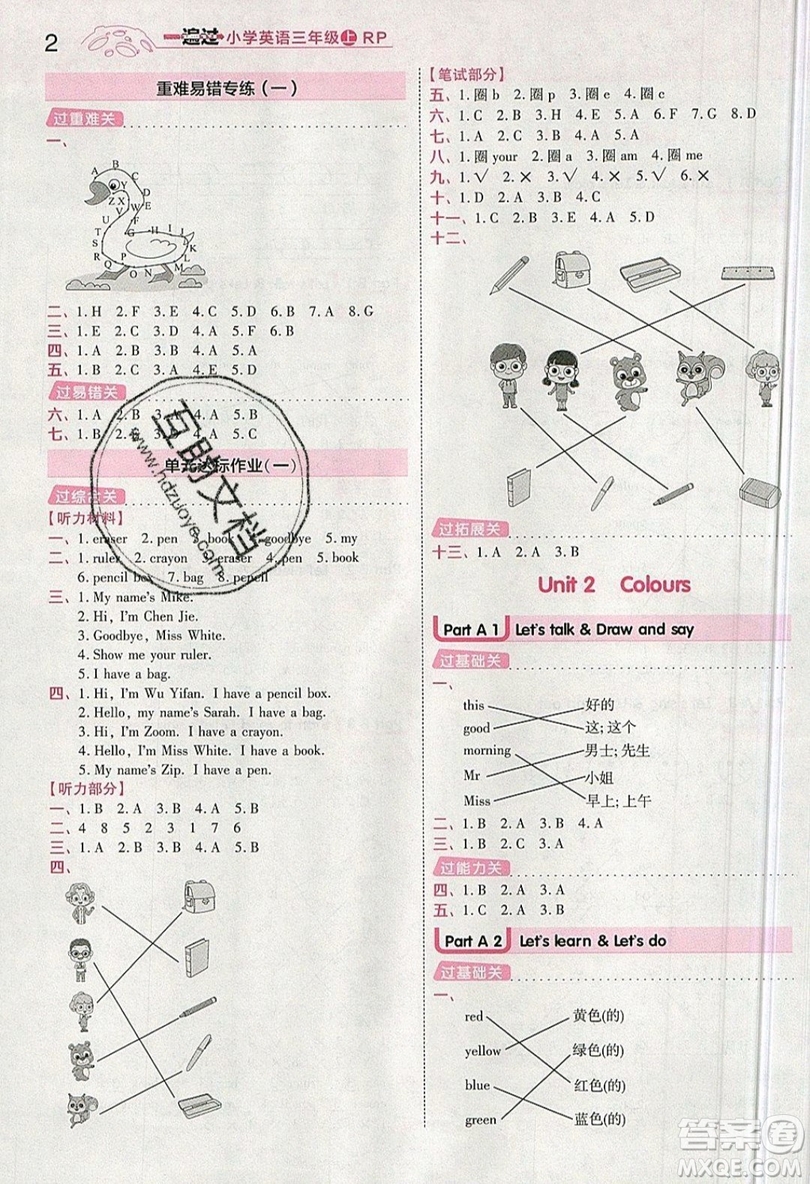 2
一遍过 小学英语三年级 上 RP
重难易错专练(一)
过重难关
一、
A B C D E F G H I J K L M N O P Q R S T U V W X Y Z
二、1. H 2. F 3. E 4. C 5. D 6. B 7. A 8. G
三、1. E 2. C 3. D 4. A 5. F 6. B
四、1. A 2. B 3. C 4. B 5. A
五、1. B 2. D 3. A 4. C 5. E
过易错关
六、1. A 2. B 3. A 4. A 5. B
七、1. B 2. B 3. A 4. A 5. C
单元达标作业(一)
过综合关
【听力材料】
一、1. eraser 2. pen 3. book 4. goodbye 5. my
二、1. ruler 2. crayon 3. eraser 4. pen 5. book
6. pencil box 7. bag 8. pencil
三、1. My name's Mike.
2. Hi, I'm Chen Jie.
3. Goodbye, Miss White.
4. Show me your ruler.
5. I have a bag.
四、1. Hi, I'm Wu Yifan. I have a pencil box.
2. Hello, my name's Sarah. I have a bag.
3. Hi, I'm Zoom. I have a crayon.
4. Hello, I'm Miss White. I have a book.
5. My name's Zip. I have a pen.
【听力部分】
一、1. B 2. A 3. C 4. A 5. B
二、4 8 5 2 3 1 7 6
三、1. A 2. B 3. A 4. B 5. B
四、
【笔试部分】
五、1. 圈 b 2. 圈 a 3. 圈 e 4. 圈 c
六、1. C 2. B 3. D 4. C 5. A
七、1. C 2. A 3. B 4. B 5. A
八、1. 圈 your 2. 圈 a 3. 圈 am 4. 圈 me
九、1. √ 2. × 3. × 4. √ 5. √ 6. ×
十、1. D 2. A 3. B 4. C
十一、1. C 2. B 3. E 4. A 5. D
十二、
过拓展关
十三、1. A 2. A 3. B
Unit 2 Colours
Part A 1 Let's talk & Draw and say
过基础关
一、
this 好的
good 这; 这个
morning 男士; 先生
Mr 小姐
Miss 早上; 上午
二、1. B 2. A 3. B 4. A
三、1. C 2. B 3. B
过能力关
四、1. B 2. A 3. B
五、1. C 2. A 3. B
Part A 2 Let's learn & Let's do
过基础关
一、
red 黄色(的)
yellow 绿色(的)
blue 红色(的)
green 蓝色(的)
互助文档
www.hdzuoye.com
答案圈
MXQE.COM